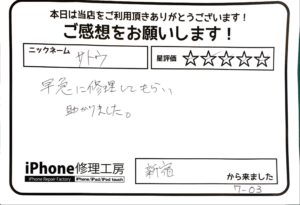 本日は当店をご利用頂きありがとうございます!
ご感想をお願いします!
ニックネーム サトウ 星評価 ☆☆☆☆☆
早急に修理してもらい
助かりました。
iPhone修理工房
iPhone Repair Factory iPhone/iPad/iPod touch
新宿 から来ました
7-03